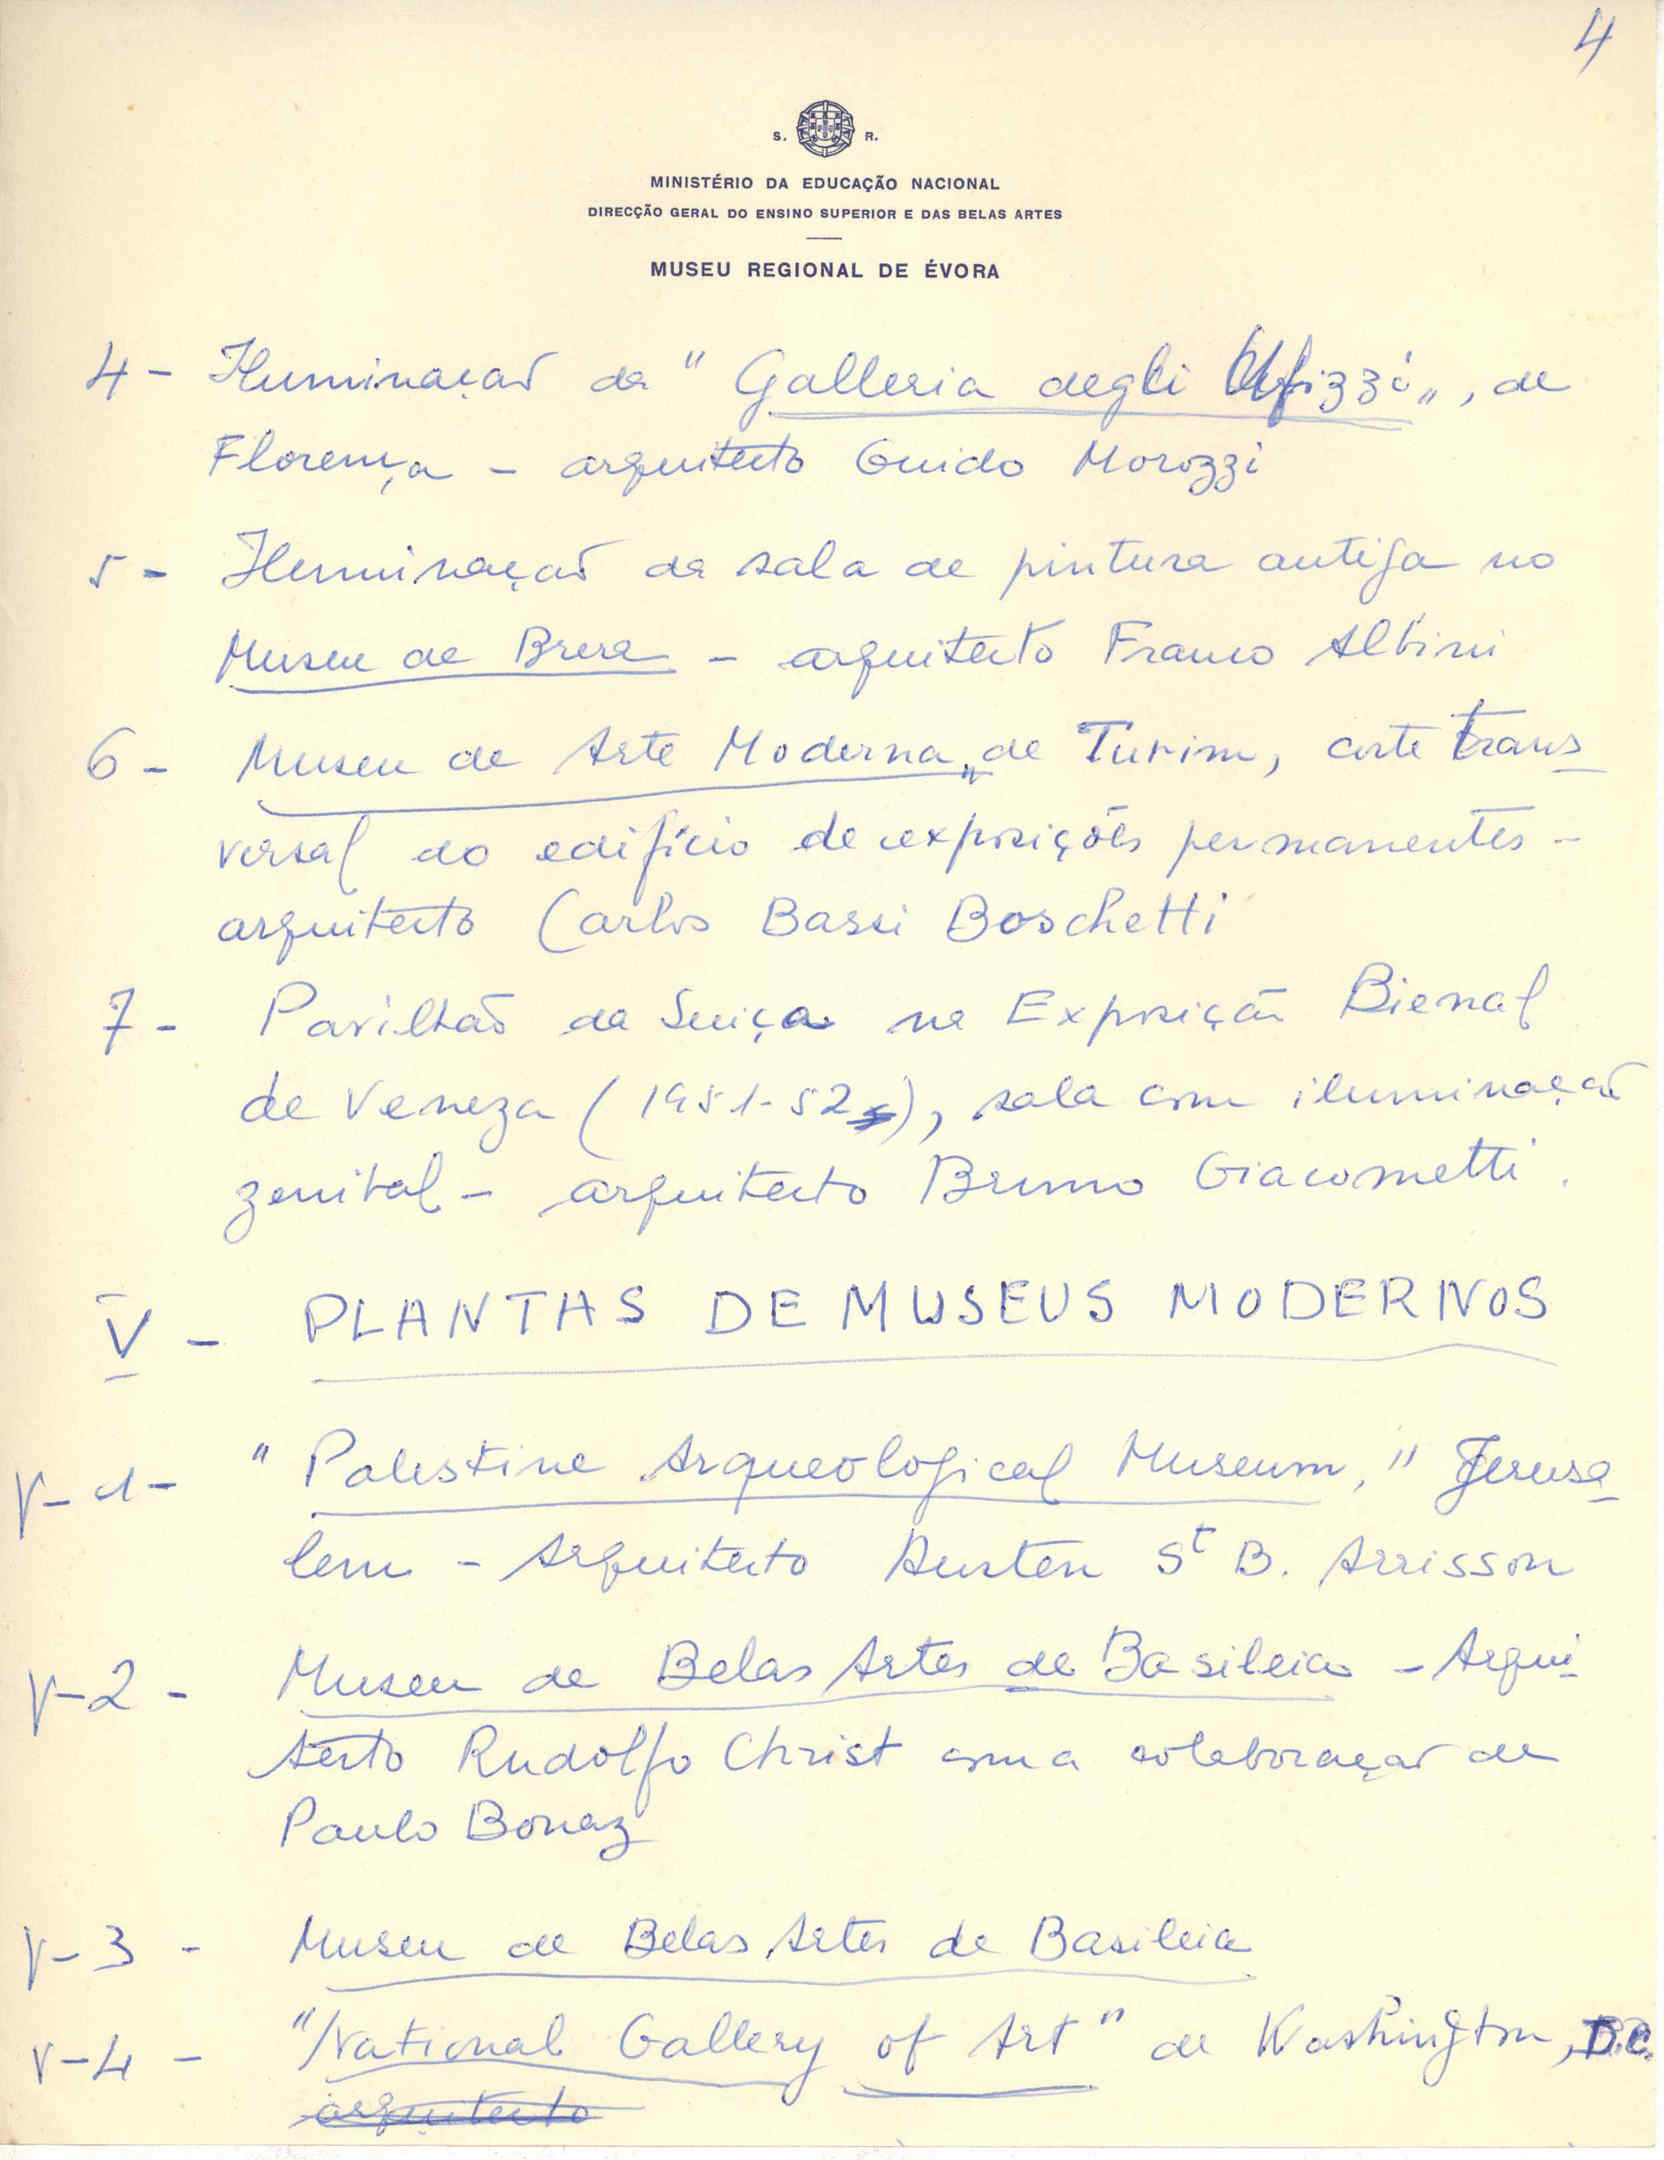 4
S. R.
MINISTÉRIO DA EDUCAÇÃO NACIONAL
DIRECÇÃO GERAL DO ENSINO SUPERIOR E DAS BELAS ARTES
MUSEU REGIONAL DE ÉVORA
4 - Iluminação da "Galleria degli Uffizzi", de
Florença - arquitecto Guido Morozzi
5 - Iluminação da sala de pintura antiga no
Museu de Brera - arquitecto Franco Albini
6 - Museu de Arte Moderna" de Turim, corte trans
versal do edifício de exposições permanentes -
arquitecto Carlos Bassi Boschetti
7 - Pavilhão da Suiça na Exposição Bienal
de Veneza (1951-52), sala com iluminação
zenital - arquitecto Bruno Giacometti.
V - PLANTAS DE MUSEUS MODERNOS
V-1- "Palestine Arqueological Museum," Jerusa
lem - Arquitecto Austen St B. Arrisson
V-2 - Museu de Belas Artes de Basileia - Arqui
tecto Rudolfo Christ com a colaboração de
Paulo Bonaz
V-3 - Museu de Belas Artes de Basileia
V-4 - "National Gallery of Art" de Washington, D.C.
arquitecto